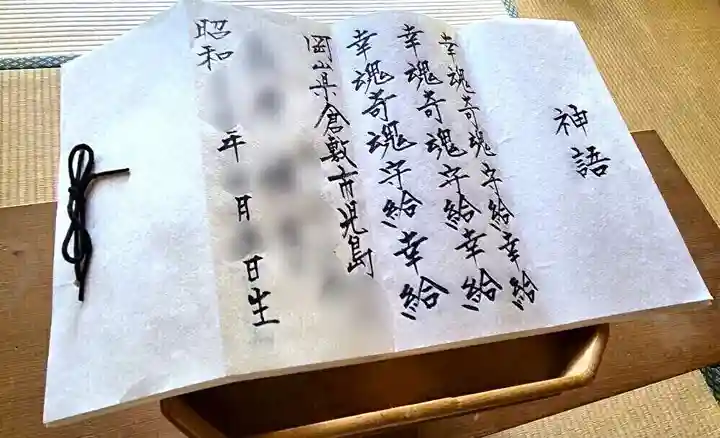 神語
幸魂奇魂守給幸給
幸魂奇魂守給幸給
幸魂奇魂守給幸給
岡山県倉敷市児島
昭和 年 月 日生